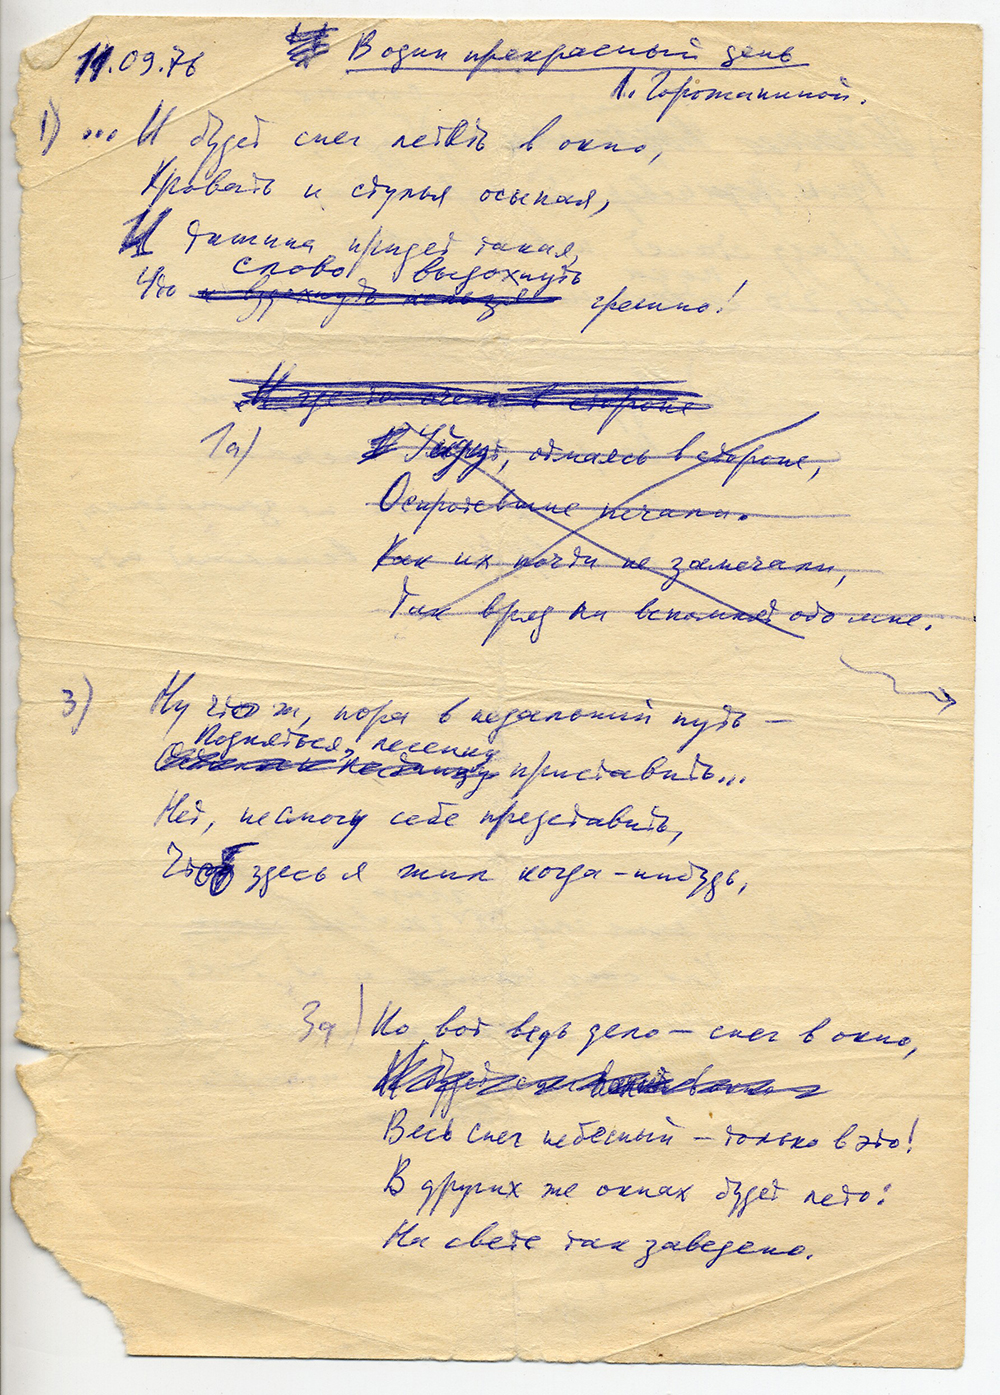 11.09.76
В один прекрасный день
Л. Горожаниной.
1) ... И будет снег лететь в окно,
Кровать и стулья осыпая,
И тишина придет такая,
слово выдохнуть
Что и вздохнуть нельзя грешно!
И где то очень в стороне
1а) Уйдут, отмаясь в стороне,
Осиротевшие печали.
Как их почти не замечали,
Так вряд ли вспомнят обо мне.
3) Ну что ж, пора в недальний путь –
Подняться, лесенку
приставить...
Нет, не смогу себе представить,
Чтоб здесь я жил когда-нибудь,
3а) Но вот ведь дело – снег в окно,
Весь снег небесный – только в это!
В других же окнах будет лето:
На свете так заведено.